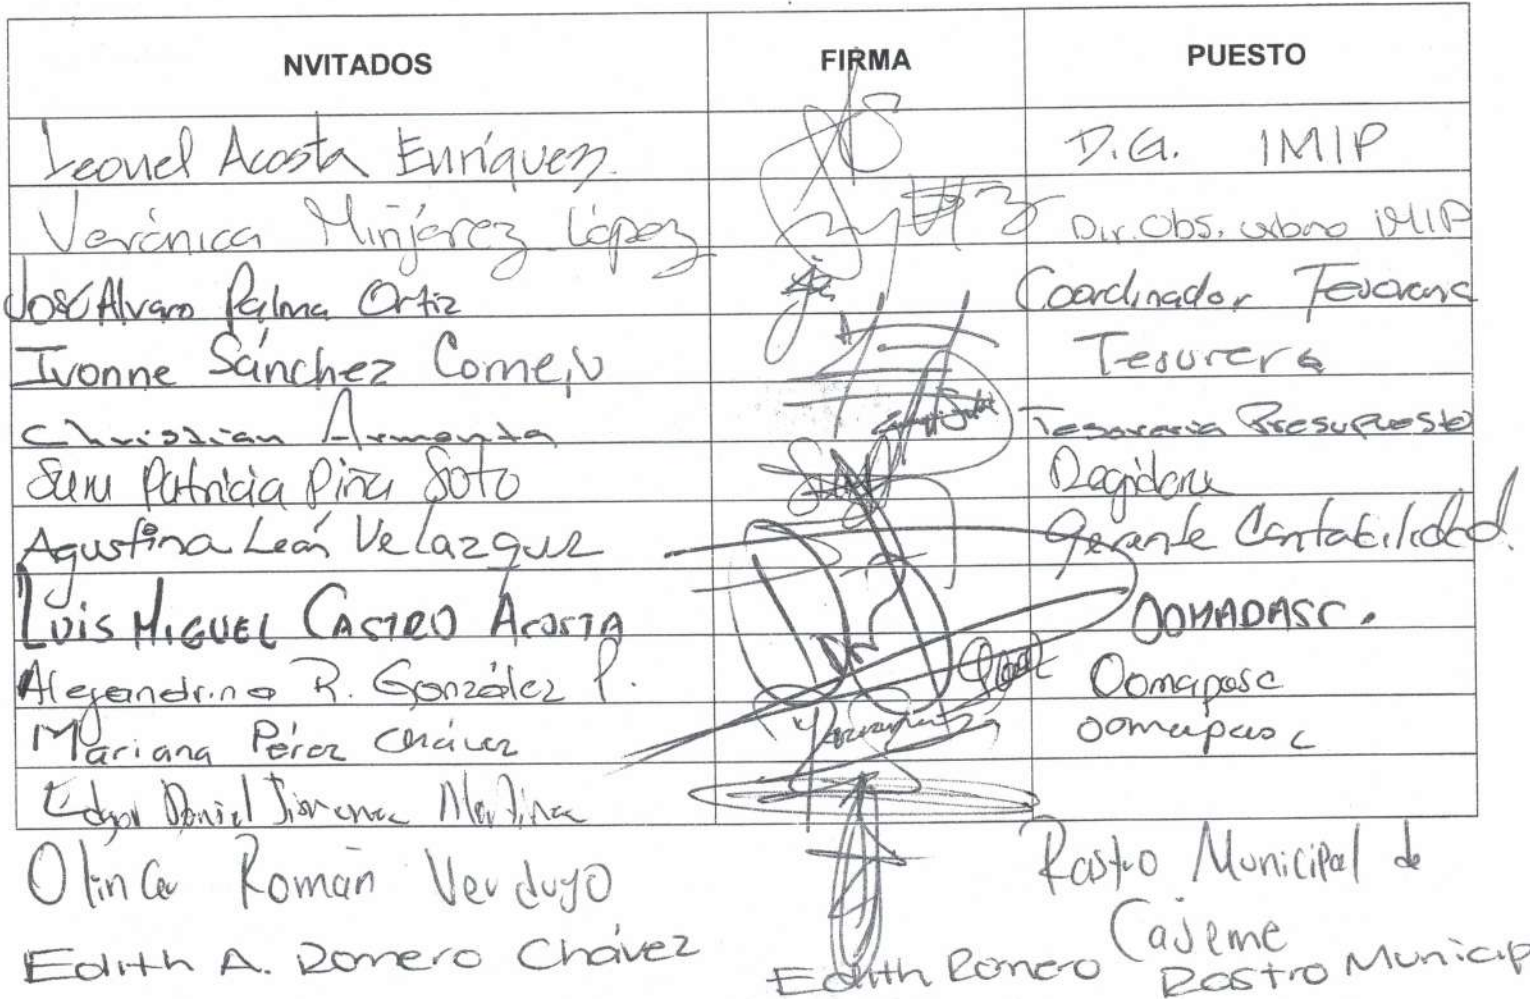 NVITADOS FIRMA PUESTO
Leonel Acosta Enríquez D.G. IMIP
Verónica Minjárez López Dir. Obs. urbano IMIP
José Alvaro Palma Ortiz Coordinador
Ivonne Sánchez Cornejo Tesorera
Christian Armenta Tesoreria Presupuesto
Patricia Piña Soto Regidora
Agustina León Velazquez Gerente Contabilidad.
LUIS MIGUEL CASTRO ACOSTA OOMAPASC.
Alejandrina R. González P. Oomapasc
Mariana Pérez Chávez oomapasc
Edgar Daniel Jimenez Martinez
Olinca Román Verdugo Rastro Municipal de
Cajeme
Edith A. Romero Chávez Edith Romero Rastro Municip